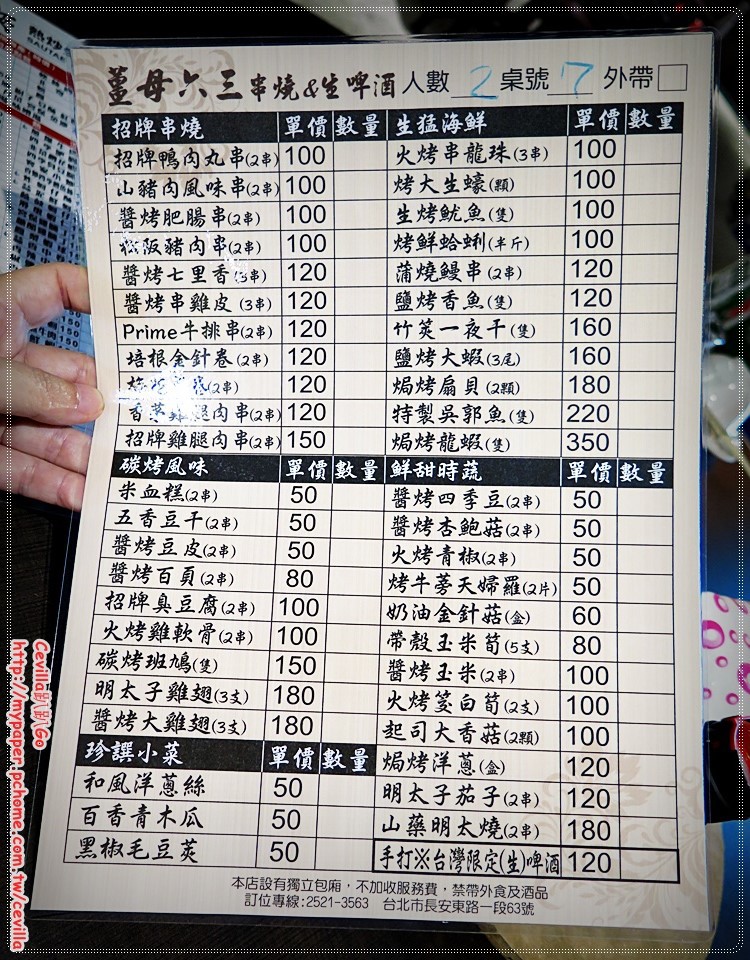 薑母六三串燒&生啤酒 人數 2 桌號 7 外帶
招牌串燒 單價 數量
招牌鴨肉丸串(2串) 100
山豬肉風味串(2串) 100
醬烤肥腸串(2串) 100
松阪豬肉串(2串) 100
醬烤七里香(3串) 120
醬烤串雞皮(3串) 120
Prime牛排串(2串) 120
培根金針卷(2串) 120
(2串) 120
香菜雞腿肉串(2串) 120
招牌雞腿肉串(2串) 150
碳烤風味 單價 數量
米血糕(2串) 50
五香豆干(2串) 50
醬烤豆皮(2串) 50
醬烤百頁(2串) 80
招牌臭豆腐(2串) 100
火烤雞軟骨(2串) 100
碳烤斑鳩(隻) 150
明太子雞翅(3支) 180
醬烤大雞翅(3支) 180
珍饌小菜 單價 數量
和風洋蔥絲 50
百香青木瓜 50
黑椒毛豆莢 50
生猛海鮮 單價 數量
火烤串龍珠(3串) 100
烤大生蠔(顆) 100
生烤魷魚(隻) 100
烤鮮蛤蜊(半斤) 100
蒲燒鰻串(2串) 120
鹽烤香魚(隻) 120
竹筴一夜干(隻) 160
鹽烤大蝦(3尾) 160
焗烤扇貝(2顆) 180
特製吳郭魚(隻) 220
焗烤龍蝦(隻) 350
鮮甜時蔬 單價 數量
醬烤四季豆(2串) 50
醬烤杏鮑菇(2串) 50
火烤青椒(2串) 50
烤牛蒡天婦羅(2片) 50
奶油金針菇(盒) 60
帶殼玉米筍(5支) 80
醬烤玉米(2串) 100
火烤筊白筍(2支) 100
起司大香菇(2顆) 100
焗烤洋蔥(盒) 120
明太子茄子(2串) 120
山藥明太燒(2串) 180
手打※台灣限定(生)啤酒 120
本店設有獨立包廂，不加收服務費，禁帶外食及酒品
訂位專線:2521-3563 台北市長安東路一段63號
Cevilla趴趴Go
http://mypaper.pchome.com.tw/cevilla